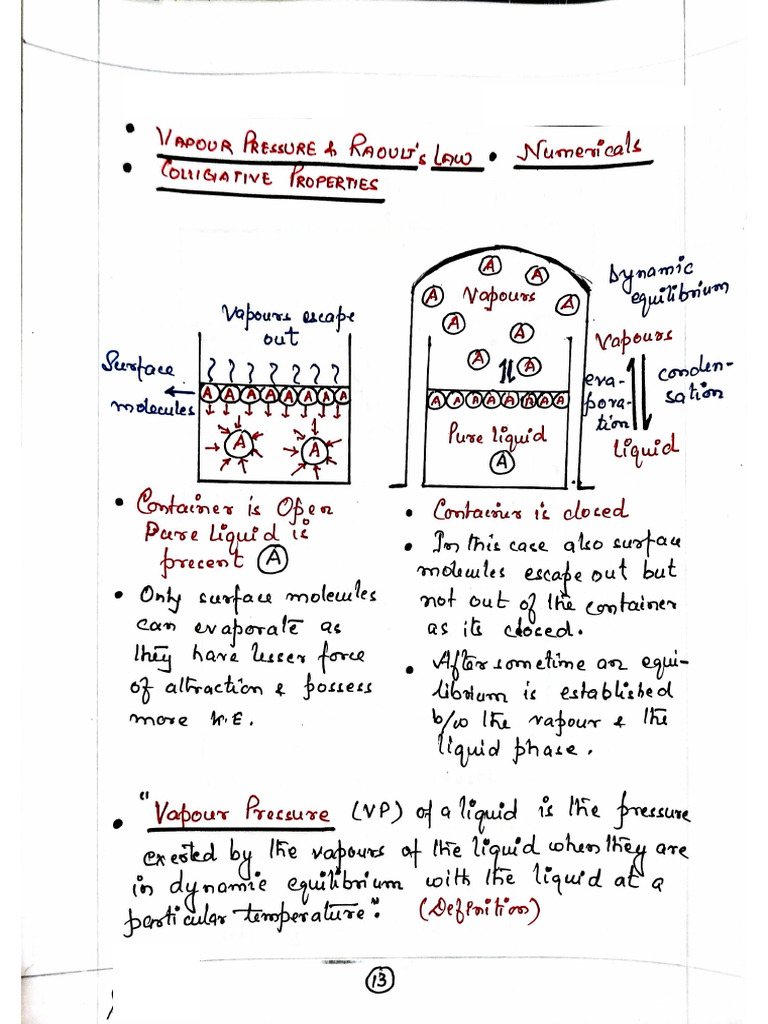 • VAPOUR PRESSURE & RAOULT's LAW • Numericals
• COLLIGATIVE PROPERTIES
Vapours escape
out
Surface
molecules
A A A A A A A A
A A
• Container is Open
Pure liquid is
precent A
• Only surface molecules
can evaporate as
they have lesser force
of attraction & possess
more K.E.
A A
Vapours
A A
A A
A A
A A A A A A A A
Pure liquid
A
Dynamic
equilibrium
Vapours
eva-
pora-
tion
conden-
sation
liquid
• Container is closed
• In this case also surface
molecules escape out but
not out of the container
as its closed.
• After sometime an equi-
librium is established
b/w the vapour & the
liquid phase.
• "Vapour Pressure (VP) of a liquid is the pressure
exerted by the vapours of the liquid when they are
in dynamic equilibrium with the liquid at a
particular temperature". (Definition)
13